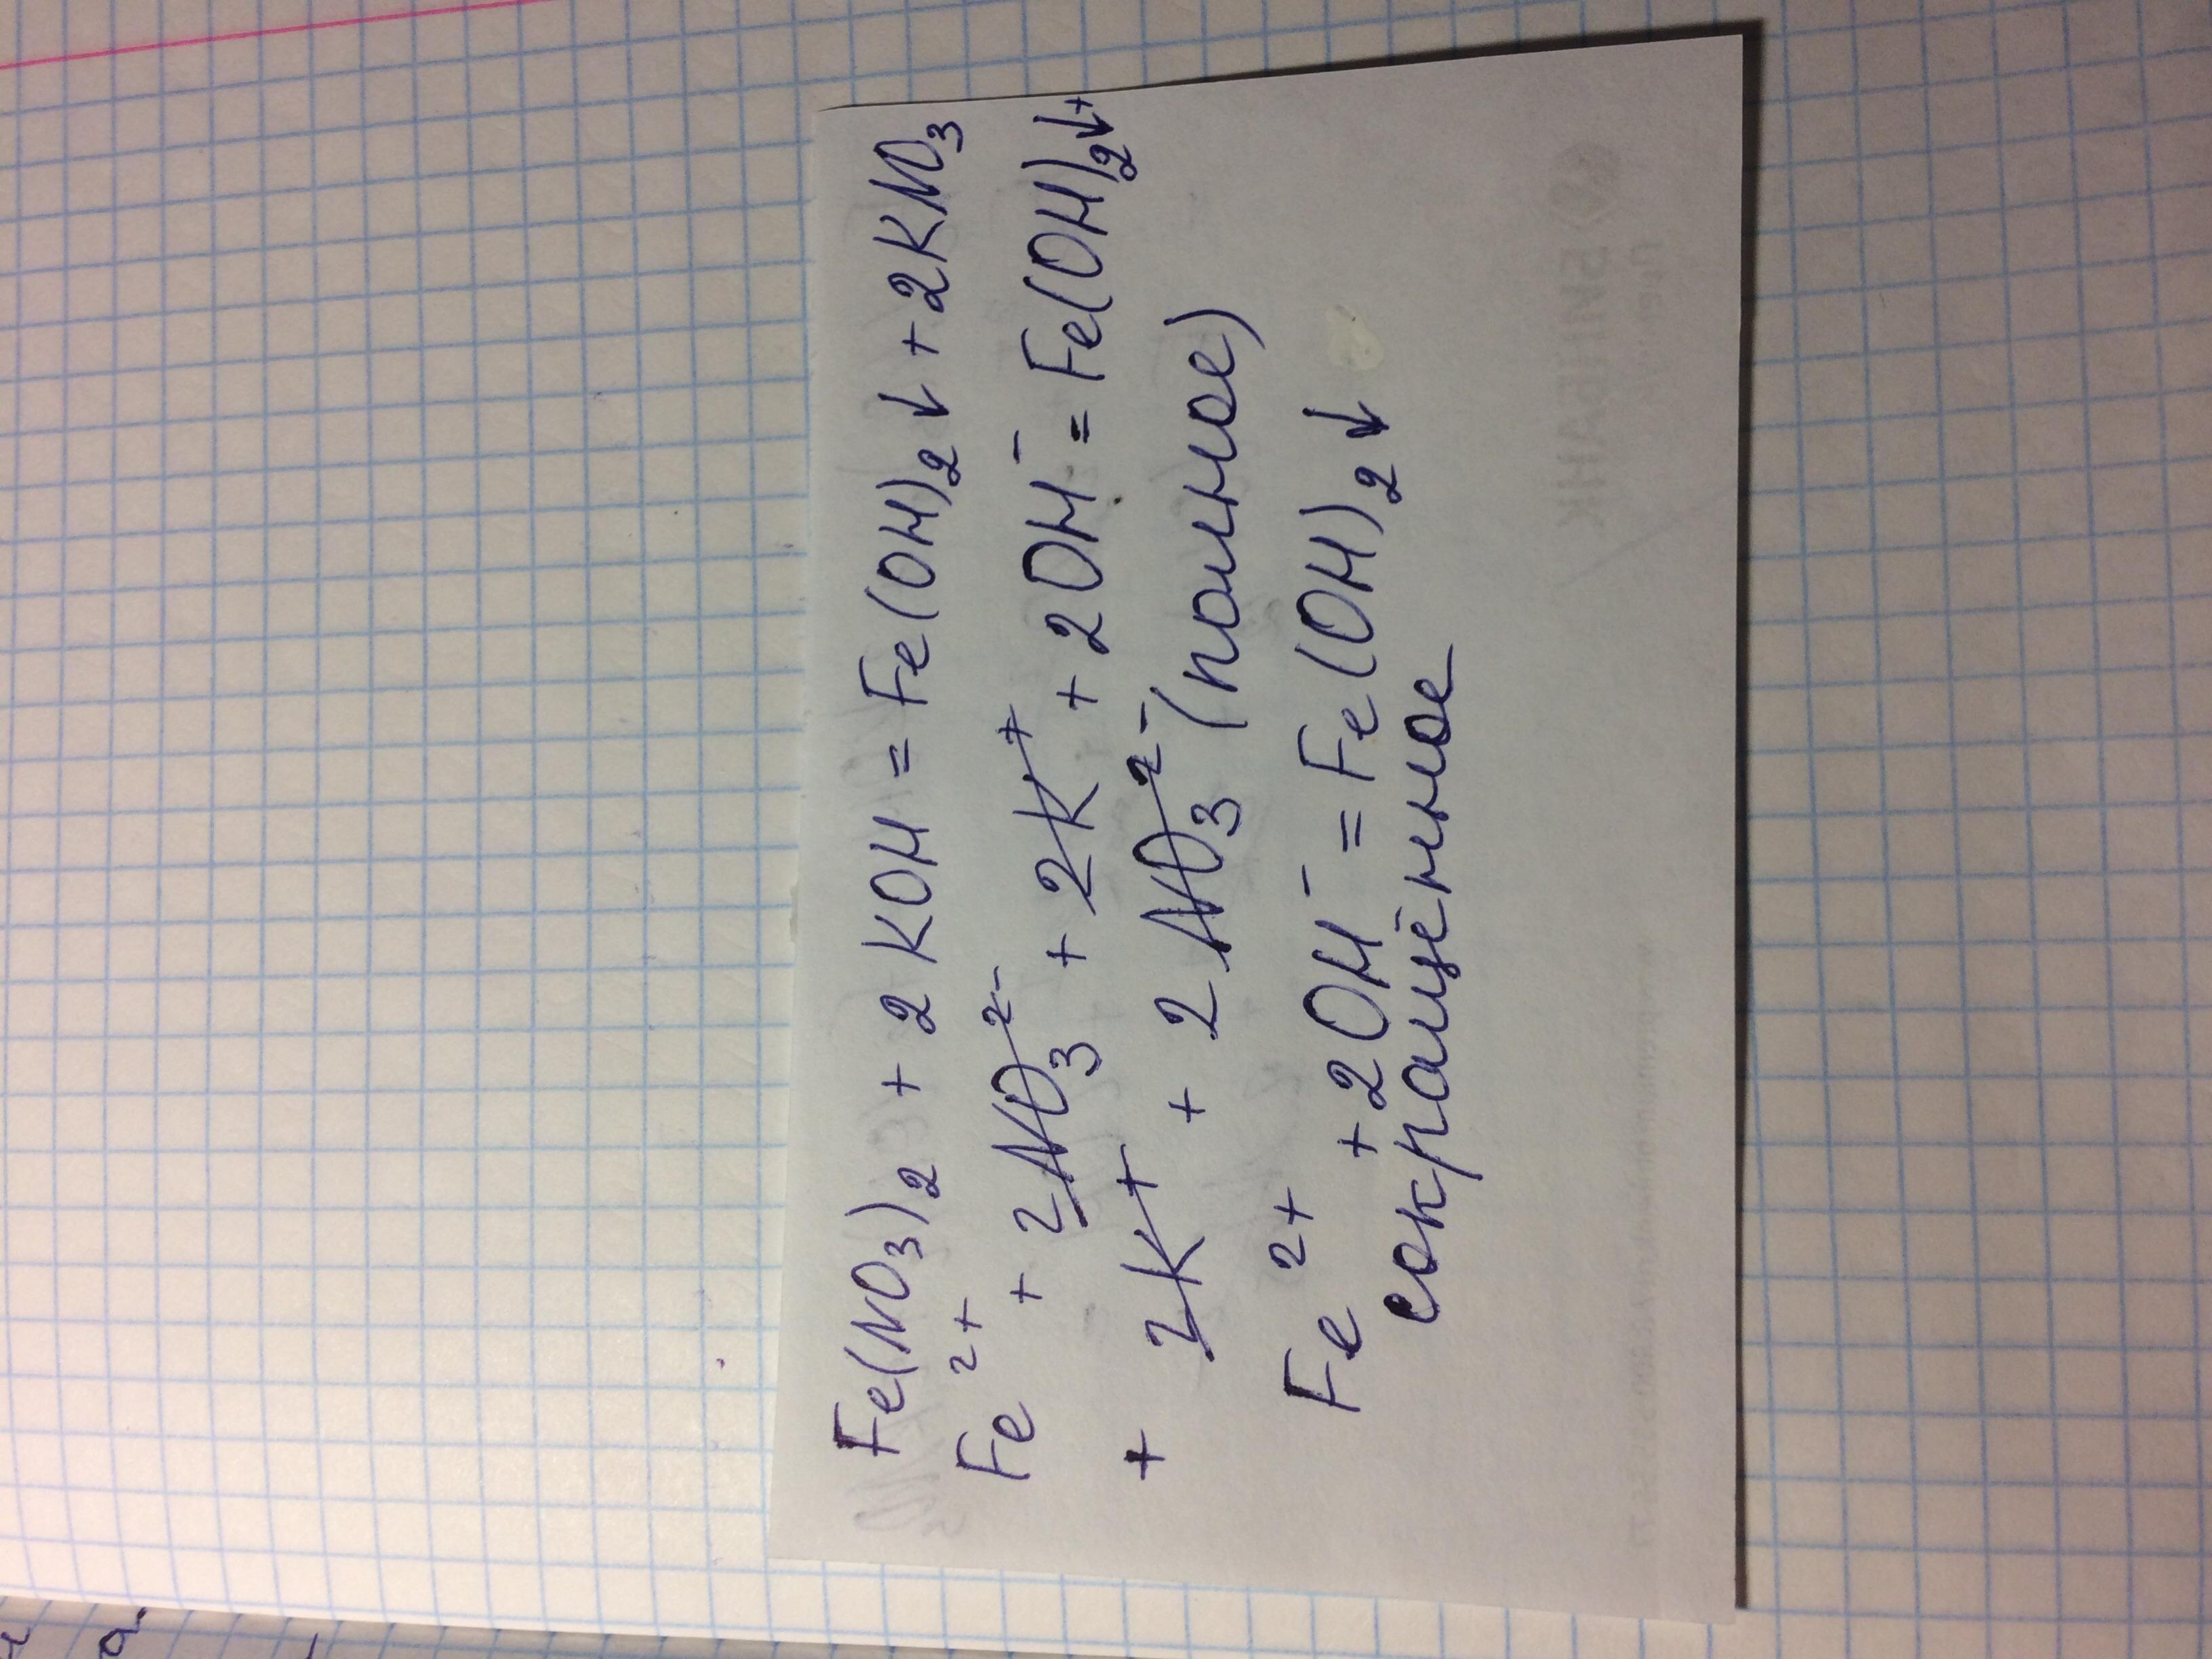 Fe(NO₃)₂ + 2KOH = Fe(OH)₂↓ + 2KNO₃
Fe²⁺ + 2NO₃²⁻ + 2K⁺ + 2OH⁻ = Fe(OH)₂↓+
+ 2K⁺ + 2NO₃²⁻ (полное)
Fe²⁺ + 2OH⁻ = Fe(OH)₂↓
сокращённое